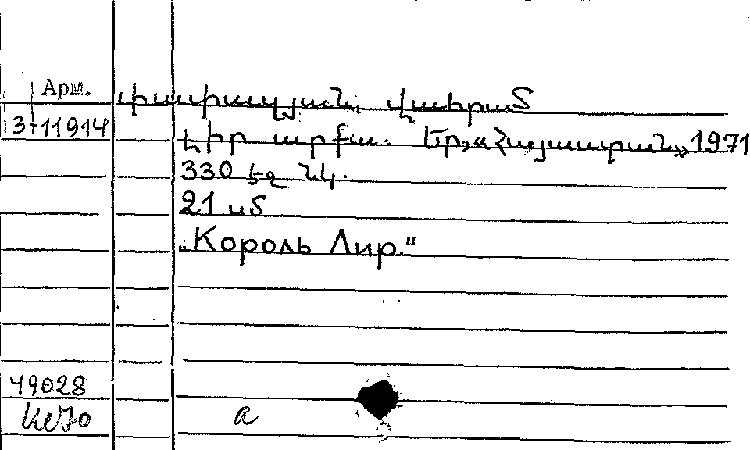 Арм.
փափազյան վահրամ
3-11914
Լիր արքա. Եր., «Հայաստան» 1971
330 էջ նկ.
21 սմ
„Король Лир."
49028
а